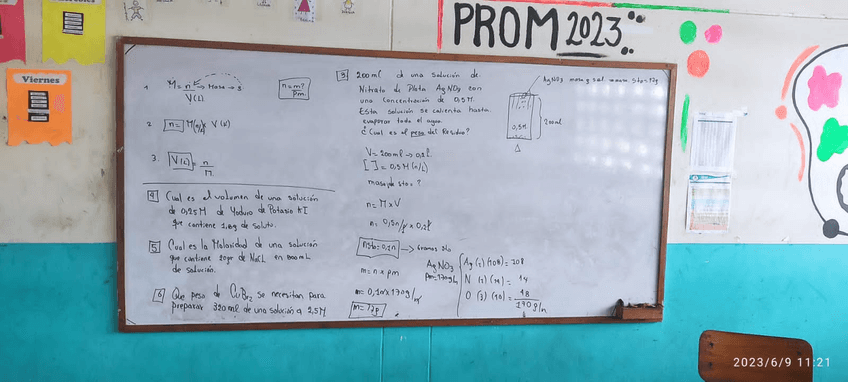 PROM 2023
Viernes
1. M = n → masa → g
V(L)
n = m?
pm.
2. n = M(n/L) x V(L)
3. V(L) = n
M
4 Cual es el volumen de una solución
de 0,25M de Yoduro de Potasio KI
que contiene de soluto.
5 Cual es la Molaridad de una solución
que contiene 20gr de NaCl en 800mL
de solución.
6 Que peso de CuBr2 se necesitan para
preparar 320 ml de una solución a 2,5M
3 200ml d una solución de
Nitrato de Plata AgNO3 con
una concentración de 0,5M.
Esta solución se calienta hasta
evaporar todo el agua.
¿Cual es el peso del Residuo?
V = 200ml → 0,2l.
[ ] = 0,5M (n/L)
masa de sto = ?
n = M x V
n = 0,5n/l x 0,2l
nsto = 0,1n → Gramos Sto
m = n x pm
m = 0,1n x 170g/n
m = 17g
AgNO3
0,5M
200ml
Δ
AgNO3
pm = 170g/n
Ag (1) (108) = 108
N (1) (14) = 14
O (3) (16) = 48
170g/n
2023/6/9 11:21